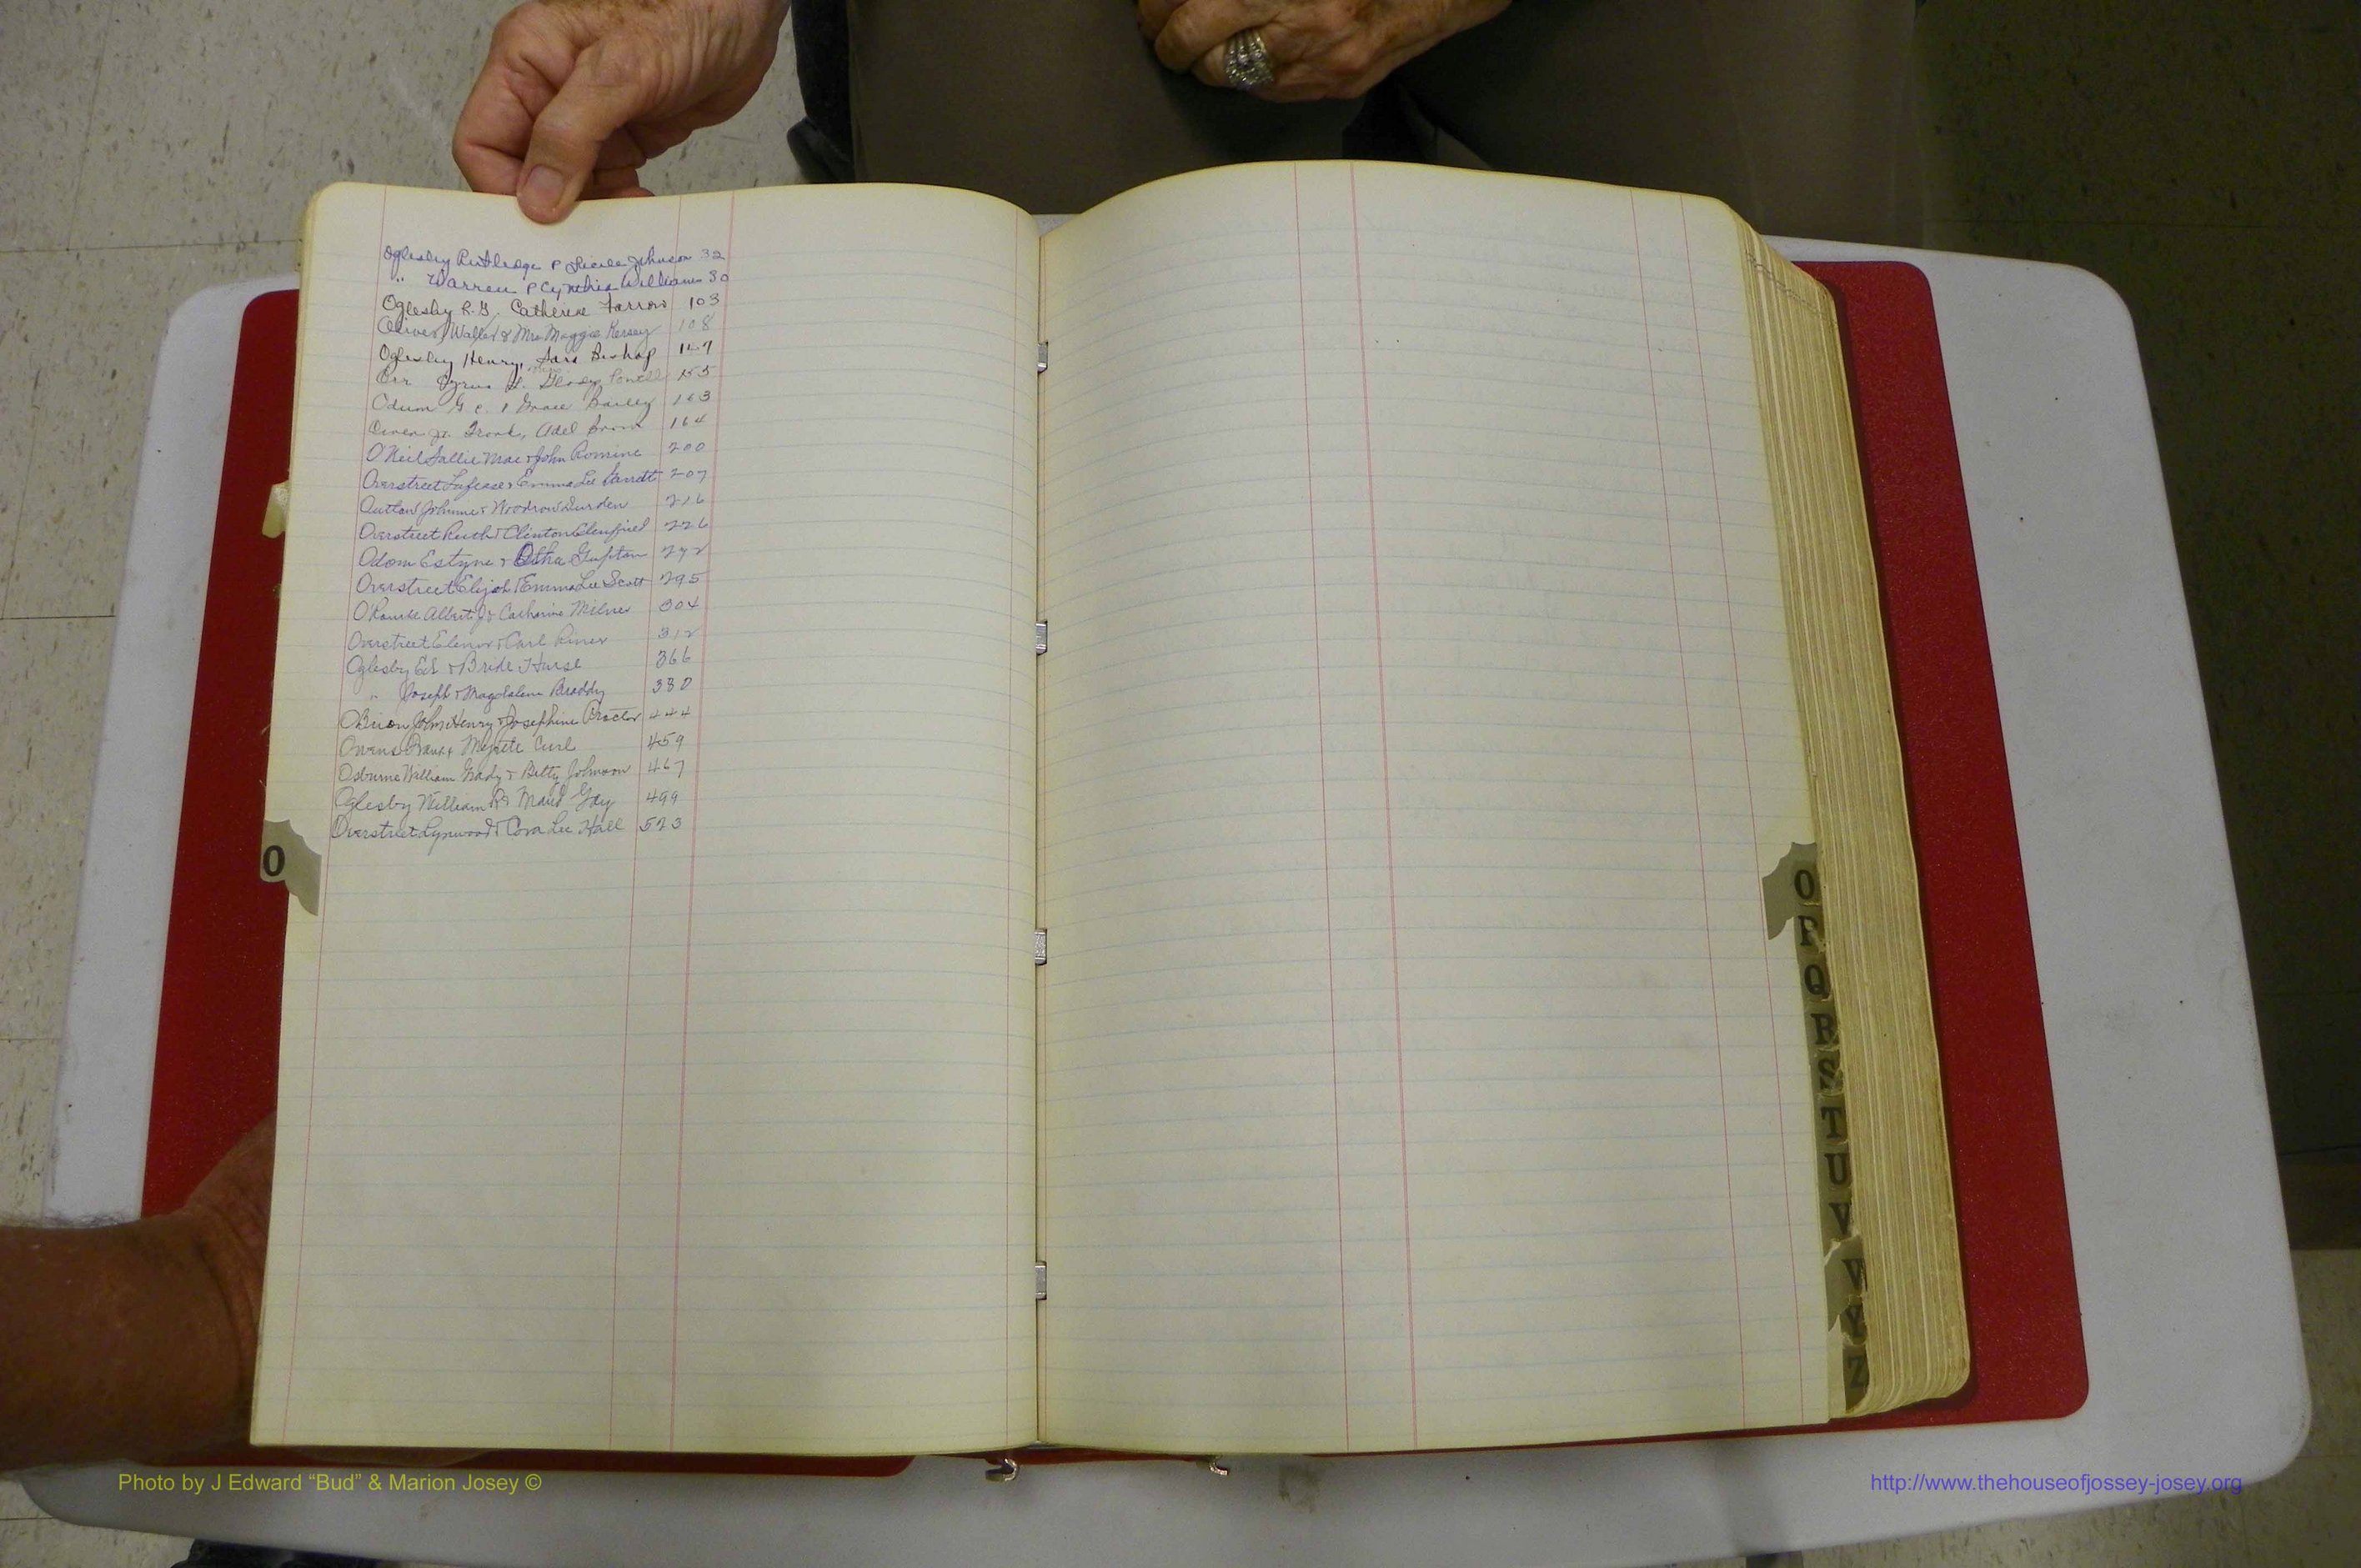 Oglesby Rutledge & Lucile Johnson 32
" Warren & Cynthia Williams 80
Oglesby R.G. Catherine Farrow 103
Oliver, Walter & Mrs Maggie Kersey 108
Oglesby Henry, Sara Bishop 147
Orr Cyrus H. Gladys Powell 155
Odum G C. & Grace Bailey 163
Owen Jr. Frank, Adel Brown 164
O'Neil Sallie Mae & John Romine 200
Overstreet & Emma Lee Garrett 207
Outlaw Johnnie & Woodrow Durden 216
Overstreet Ruth & Clinton 226
Odom Estyne & Otha 272
Overstreet Elijah & Emma Lee Scott 295
O'Rourke Albert J & Catharine Milner 304
Overstreet Elenor & Carl Riner 312
Oglesby Ed & Bride Hurse 366
" Joseph & Magdalene Braddy 380
OBrion John Henry & Josephine Proctor 444
Owens & Curl 459
Osburne William Grady & Betty Johnson 467
Oglesby William R & Maud Gay 499
Overstreet Lynwood & Cora Lee Hall 523
O
O
P
Q
R
S
T
U
V
W
Y
Z
Photo by J Edward “Bud” & Marion Josey ©
http://www.thehouseofjossey-josey.org